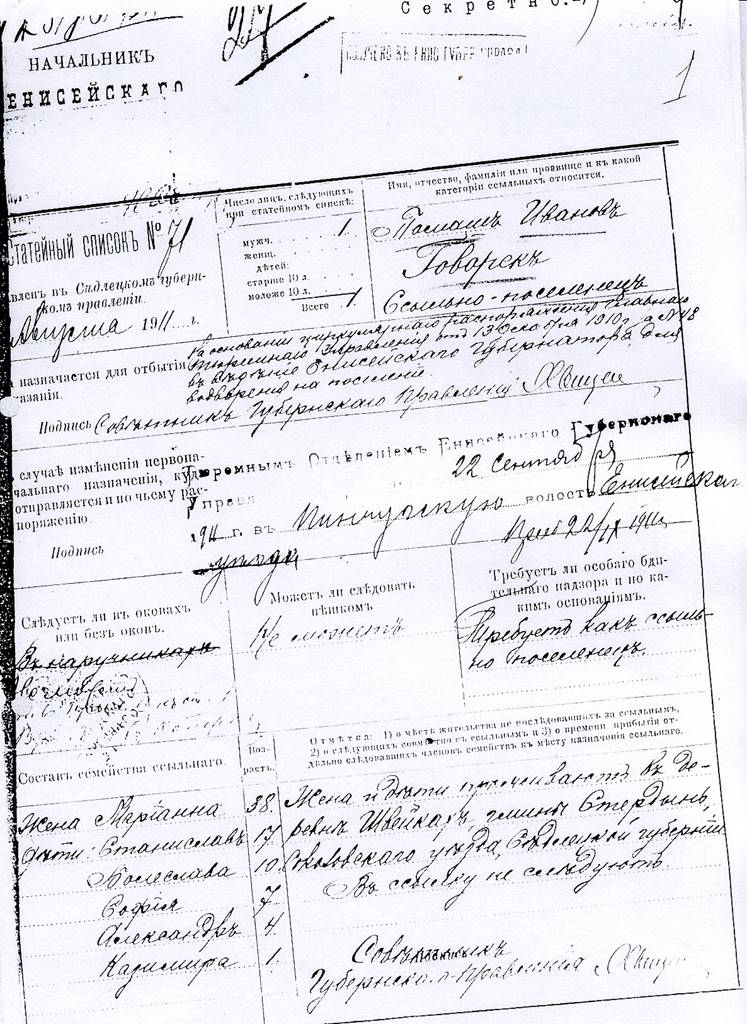 Секретно.
НАЧАЛЬНИКЪ
ЕНИСЕЙСКАГО
1
Статейный списокъ № 71
Сѣдлецкомъ губерн-
скомъ правленіи.
Августа 1911 г.
Число лицъ, слѣдующихъ
при статейномъ спискѣ:
мужч. 1
женщ.
дѣтей:
старше 10 л.
моложе 10 л.
Всего 1
Имя, отчество, фамилія или прозвище и къ какой
категоріи ссыльныхъ относится.
Ивановъ
Говорекъ
Ссыльно-поселенецъ
назначается для отбытія
казанія.
На основаніи циркулярнаго распоряженія Главнаго
Тюремнаго Управленія отъ 13 Октября 1910 г. за № 48
въ вѣдѣніе Енисейскаго Губернатора для
водворенія на поселеніе.
Подпись Совѣтникъ Губернскаго Правленія
случаѣ измѣненія первона-
чальнаго назначенія, куда
отправляется и по чьему рас-
поряженію.
Подпись
Тюремнымъ Отдѣленіемъ Енисейскаго Губернскаго
Управ 22 Сентября
1911 г. въ Пинчугскую волость Енисейскаго
уѣзда
22/IX 1911
Слѣдуетъ ли въ оковахъ
или безъ оковъ.
Въ наручникахъ
Можетъ ли слѣдовать
пѣшкомъ
Не можетъ
Требуетъ ли особаго бди-
тельнаго надзора и по ка-
кимъ основаніямъ.
Требуетъ какъ ссыль-
но поселенецъ.
Составъ семейства ссыльнаго.
Воз-
растъ.
Отмѣтка: 1) о мѣстѣ жительства не послѣдовавшихъ за ссыльнымъ,
2) о слѣдующихъ совмѣстно съ ссыльнымъ и 3) о времени прибытія от-
дѣльно слѣдовавшихъ членовъ семействъ къ мѣсту назначенія ссыльнаго.
Жена Маріанна 38.
дѣти: Станиславъ 17
Болеслава 10
Софія 7
Александръ 4.
Казимира 1.
Жена и дѣти проживаютъ въ де-
ревнѣ Швейкахъ, гмины Стердынь,
Соколовскаго уѣзда, Сѣдлецкой губерніи
Въ ссылку не слѣдуютъ.
Совѣтникъ
Губернскаго Правленія